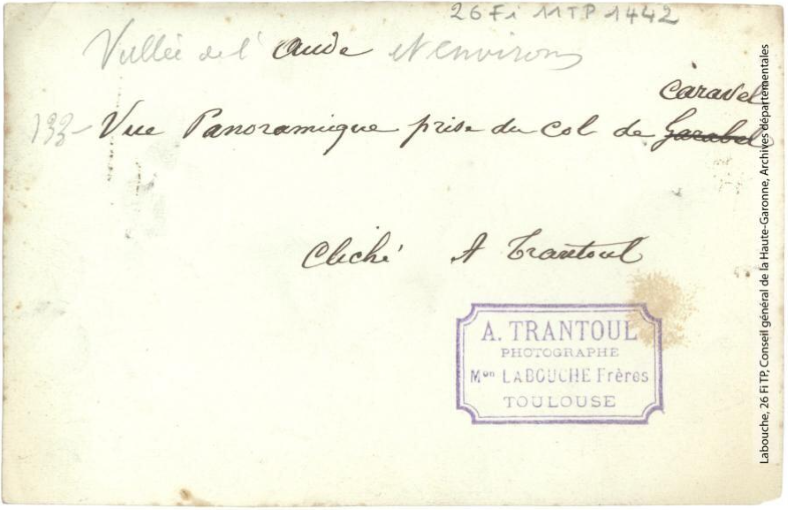 26 Fi 11 TP 1442
Vallée de l' Aude et environs
caravel
133- Vue Panoramique prise du col de Garabel
Cliché A Trantoul
A. TRANTOUL
PHOTOGRAPHE
Mon LABOUCHE Frères
TOULOUSE
Labouche, 26 Fi TP, Conseil général de la Haute-Garonne, Archives départementales